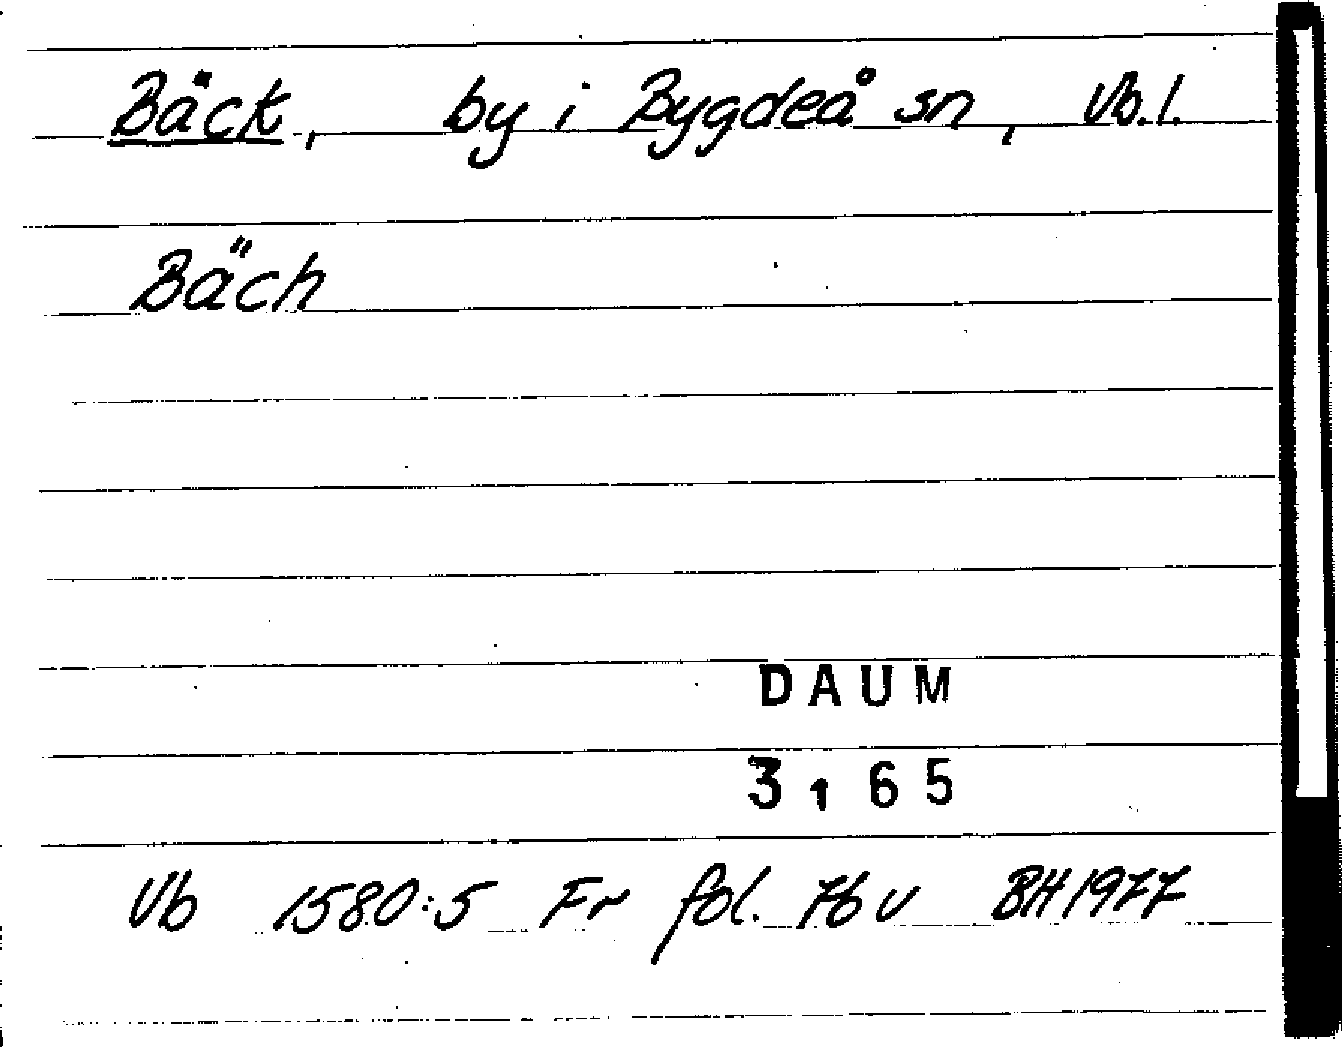 Bäck, by i Bygdeå sn, Vb.l.
Bäch
DAUM
3165
Vb 1580:5 Fr fol. 76 v BH 1977